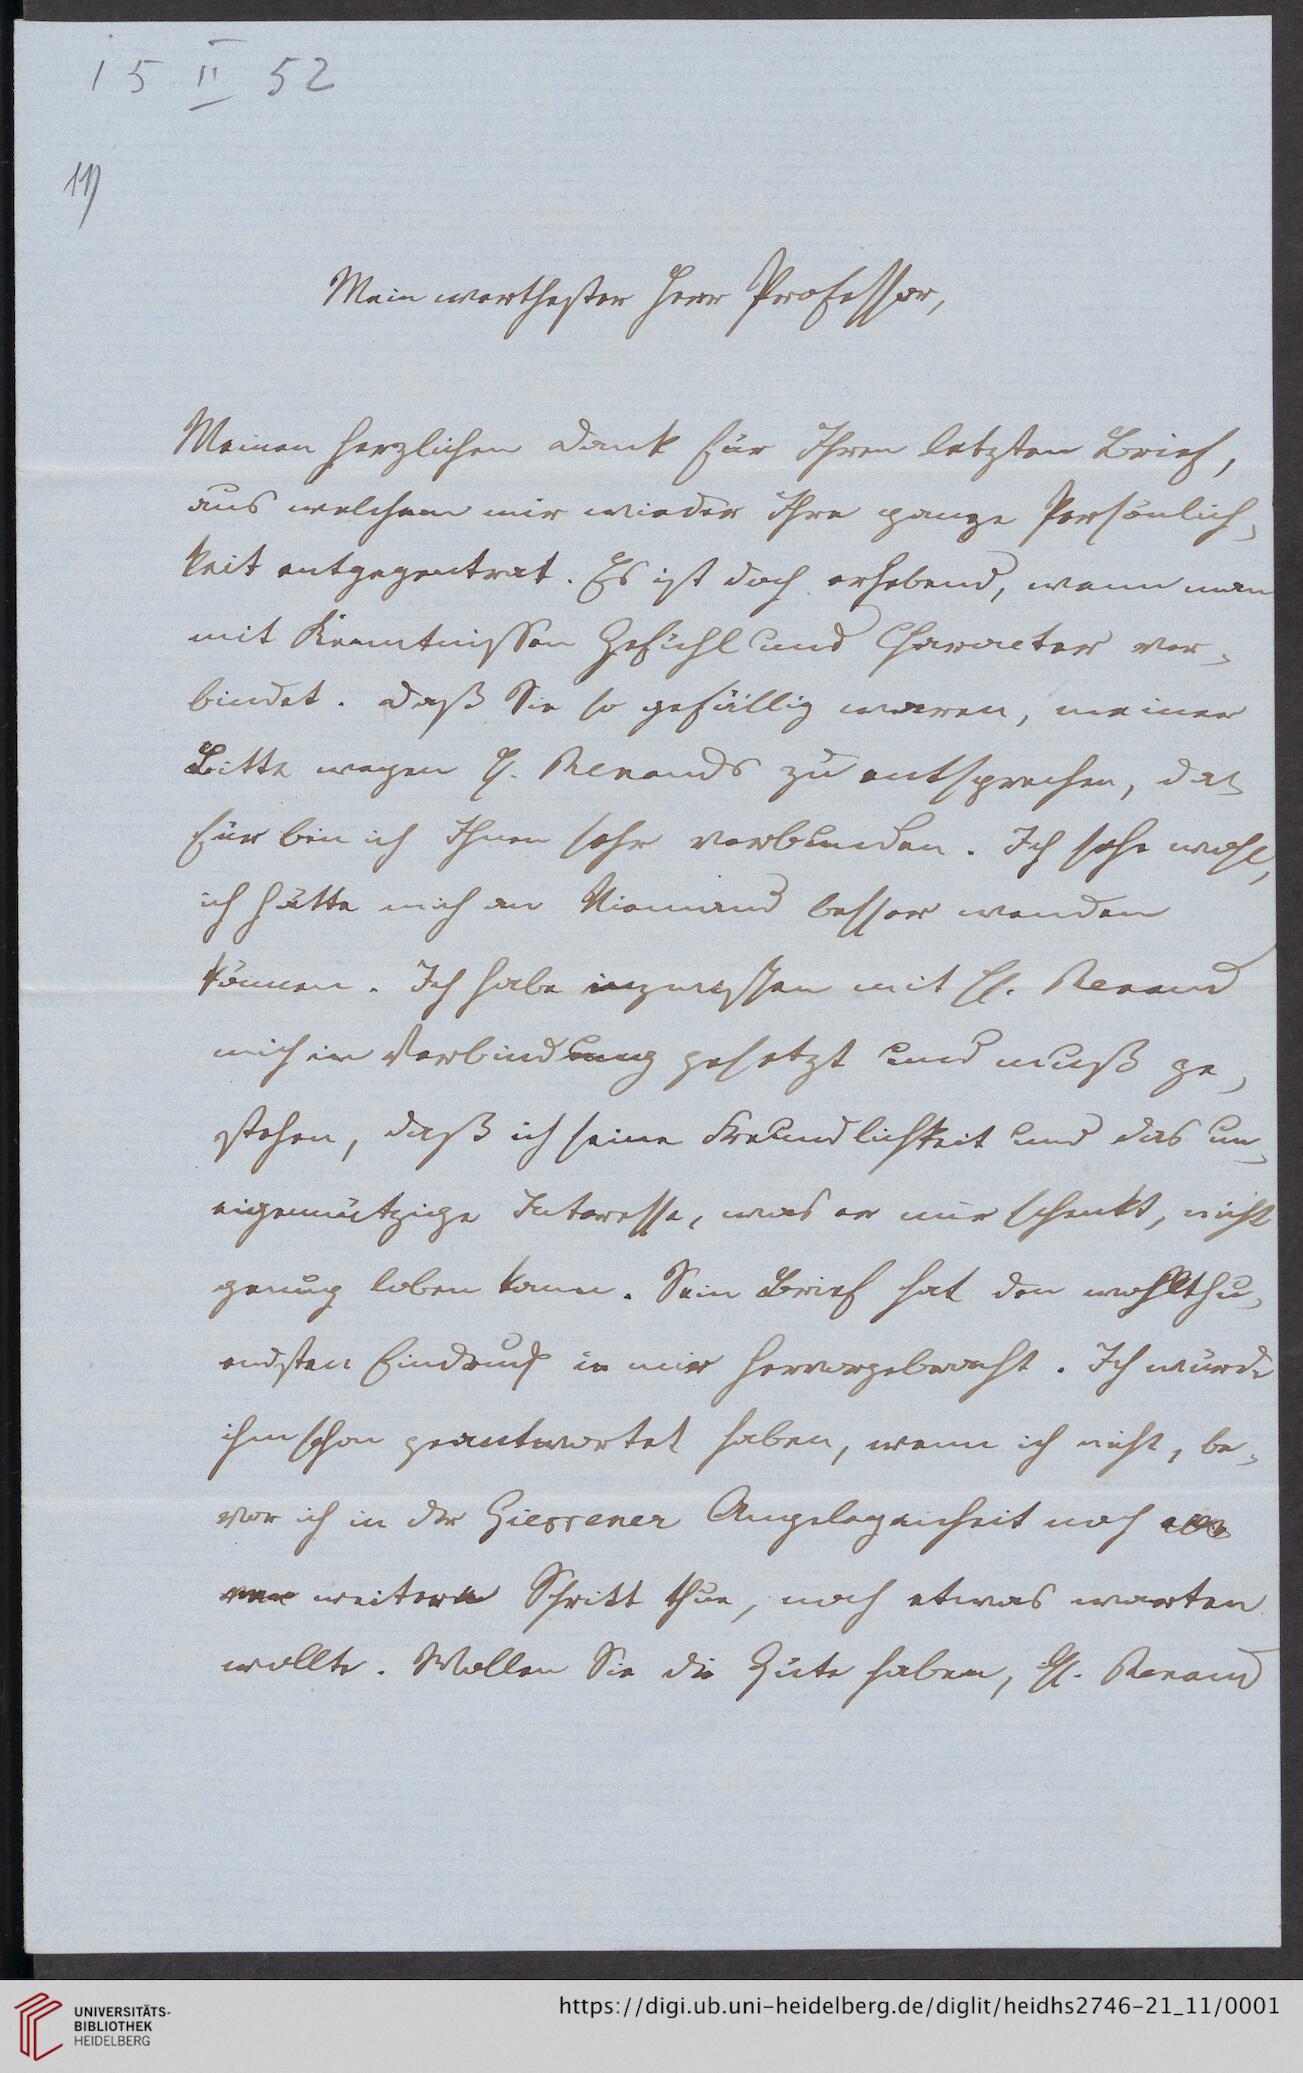 15 II 52
11)
Mein werthester Herr Professor,
Meinen herzlichen Dank für Ihren letzten Brief,
aus welchem mir wieder Ihre ganze Persönlich-
keit entgegentrat. Es ist doch erhebend, wenn man
mit Kenntnissen Gefühl und Character ver-
bindet. Daß Sie so gefällig waren, meiner
Bitte wegen H. Renauds zu entsprechen, da-
für bin ich Ihnen sehr verbunden. Ich sehe wohl,
ich hätte mich an Niemand besser wenden
können. Ich habe inzwischen mit H. Renaud
mich in Verbindung gesetzt und muß ge-
stehen, daß ich seine Freundlichkeit und das un-
eigennützige Interesse, was er mir schenkt, nicht
genug loben kann. Sein Brief hat den wohlthu-
endsten Eindruck in mir hervorgebracht. Ich würde
ihm schon geantwortet haben, wenn ich nicht, be-
vor ich in der Giessener Angelegenheit noch
weitern Schritt thue, noch etwas warten
wollte. Wollen Sie die Güte haben, H. Renaud
UNIVERSITÄTS-
BIBLIOTHEK
HEIDELBERG
https://digi.ub.uni-heidelberg.de/diglit/heidhs2746-21_11/0001